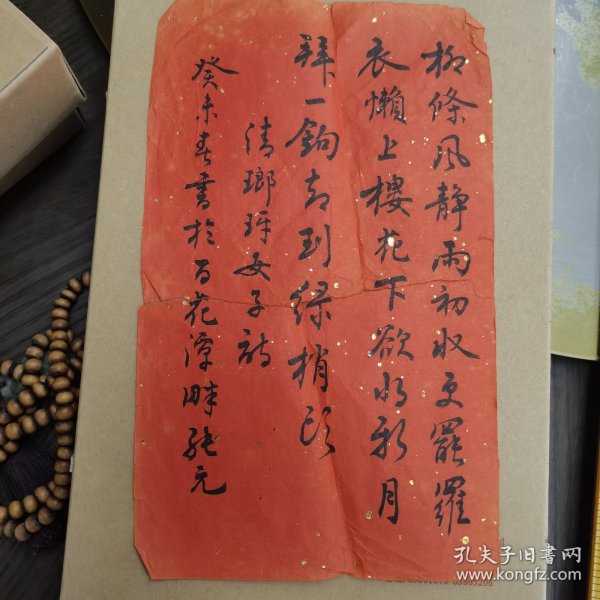 柳條風静雨初收更罷羅
衣懶上樓花下欲將新月
拜一鉤却到緑梢頭
清瑯琊女子詩
癸未春書於百花潭畔張元
孔夫子旧书网
www.kongfz.com